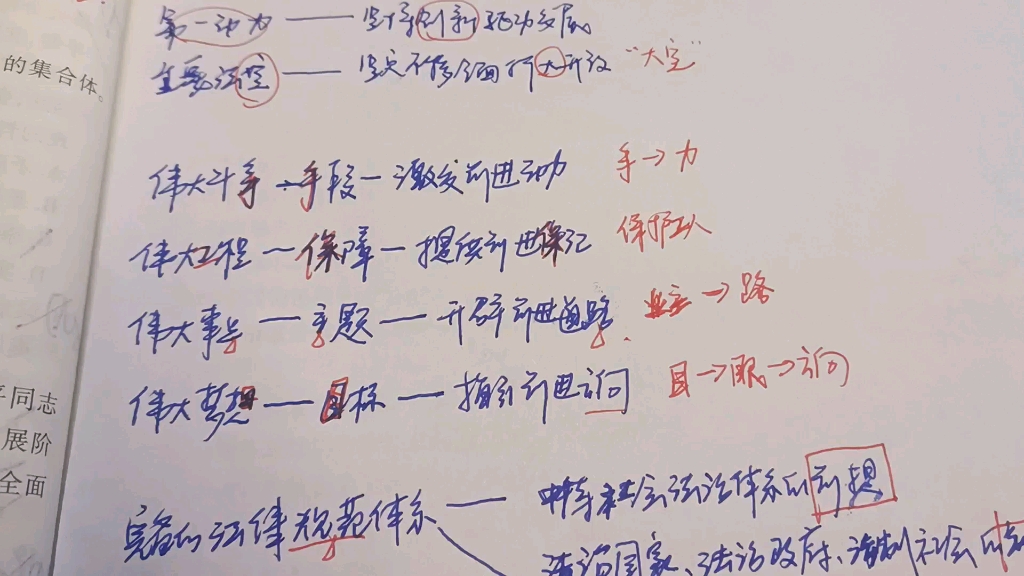 第一动力 —— 坚持创新驱动发展
主要法宝 —— 坚定不移全面扩大开放 “大宝”
的集合体。
伟大斗争 — 手段 — 激发前进动力 手→力
伟大工程 — 保障 — 提供前进保证 保护工人
伟大事业 — 主题 — 开辟前进道路 业主→路
伟大梦想 — 目标 — 指引前进方向 目→眼→方向
平同志
展阶
全面
完备的法律规范体系 —— 中特社会法治体系的前提
法治国家、法治政府、法制社会的